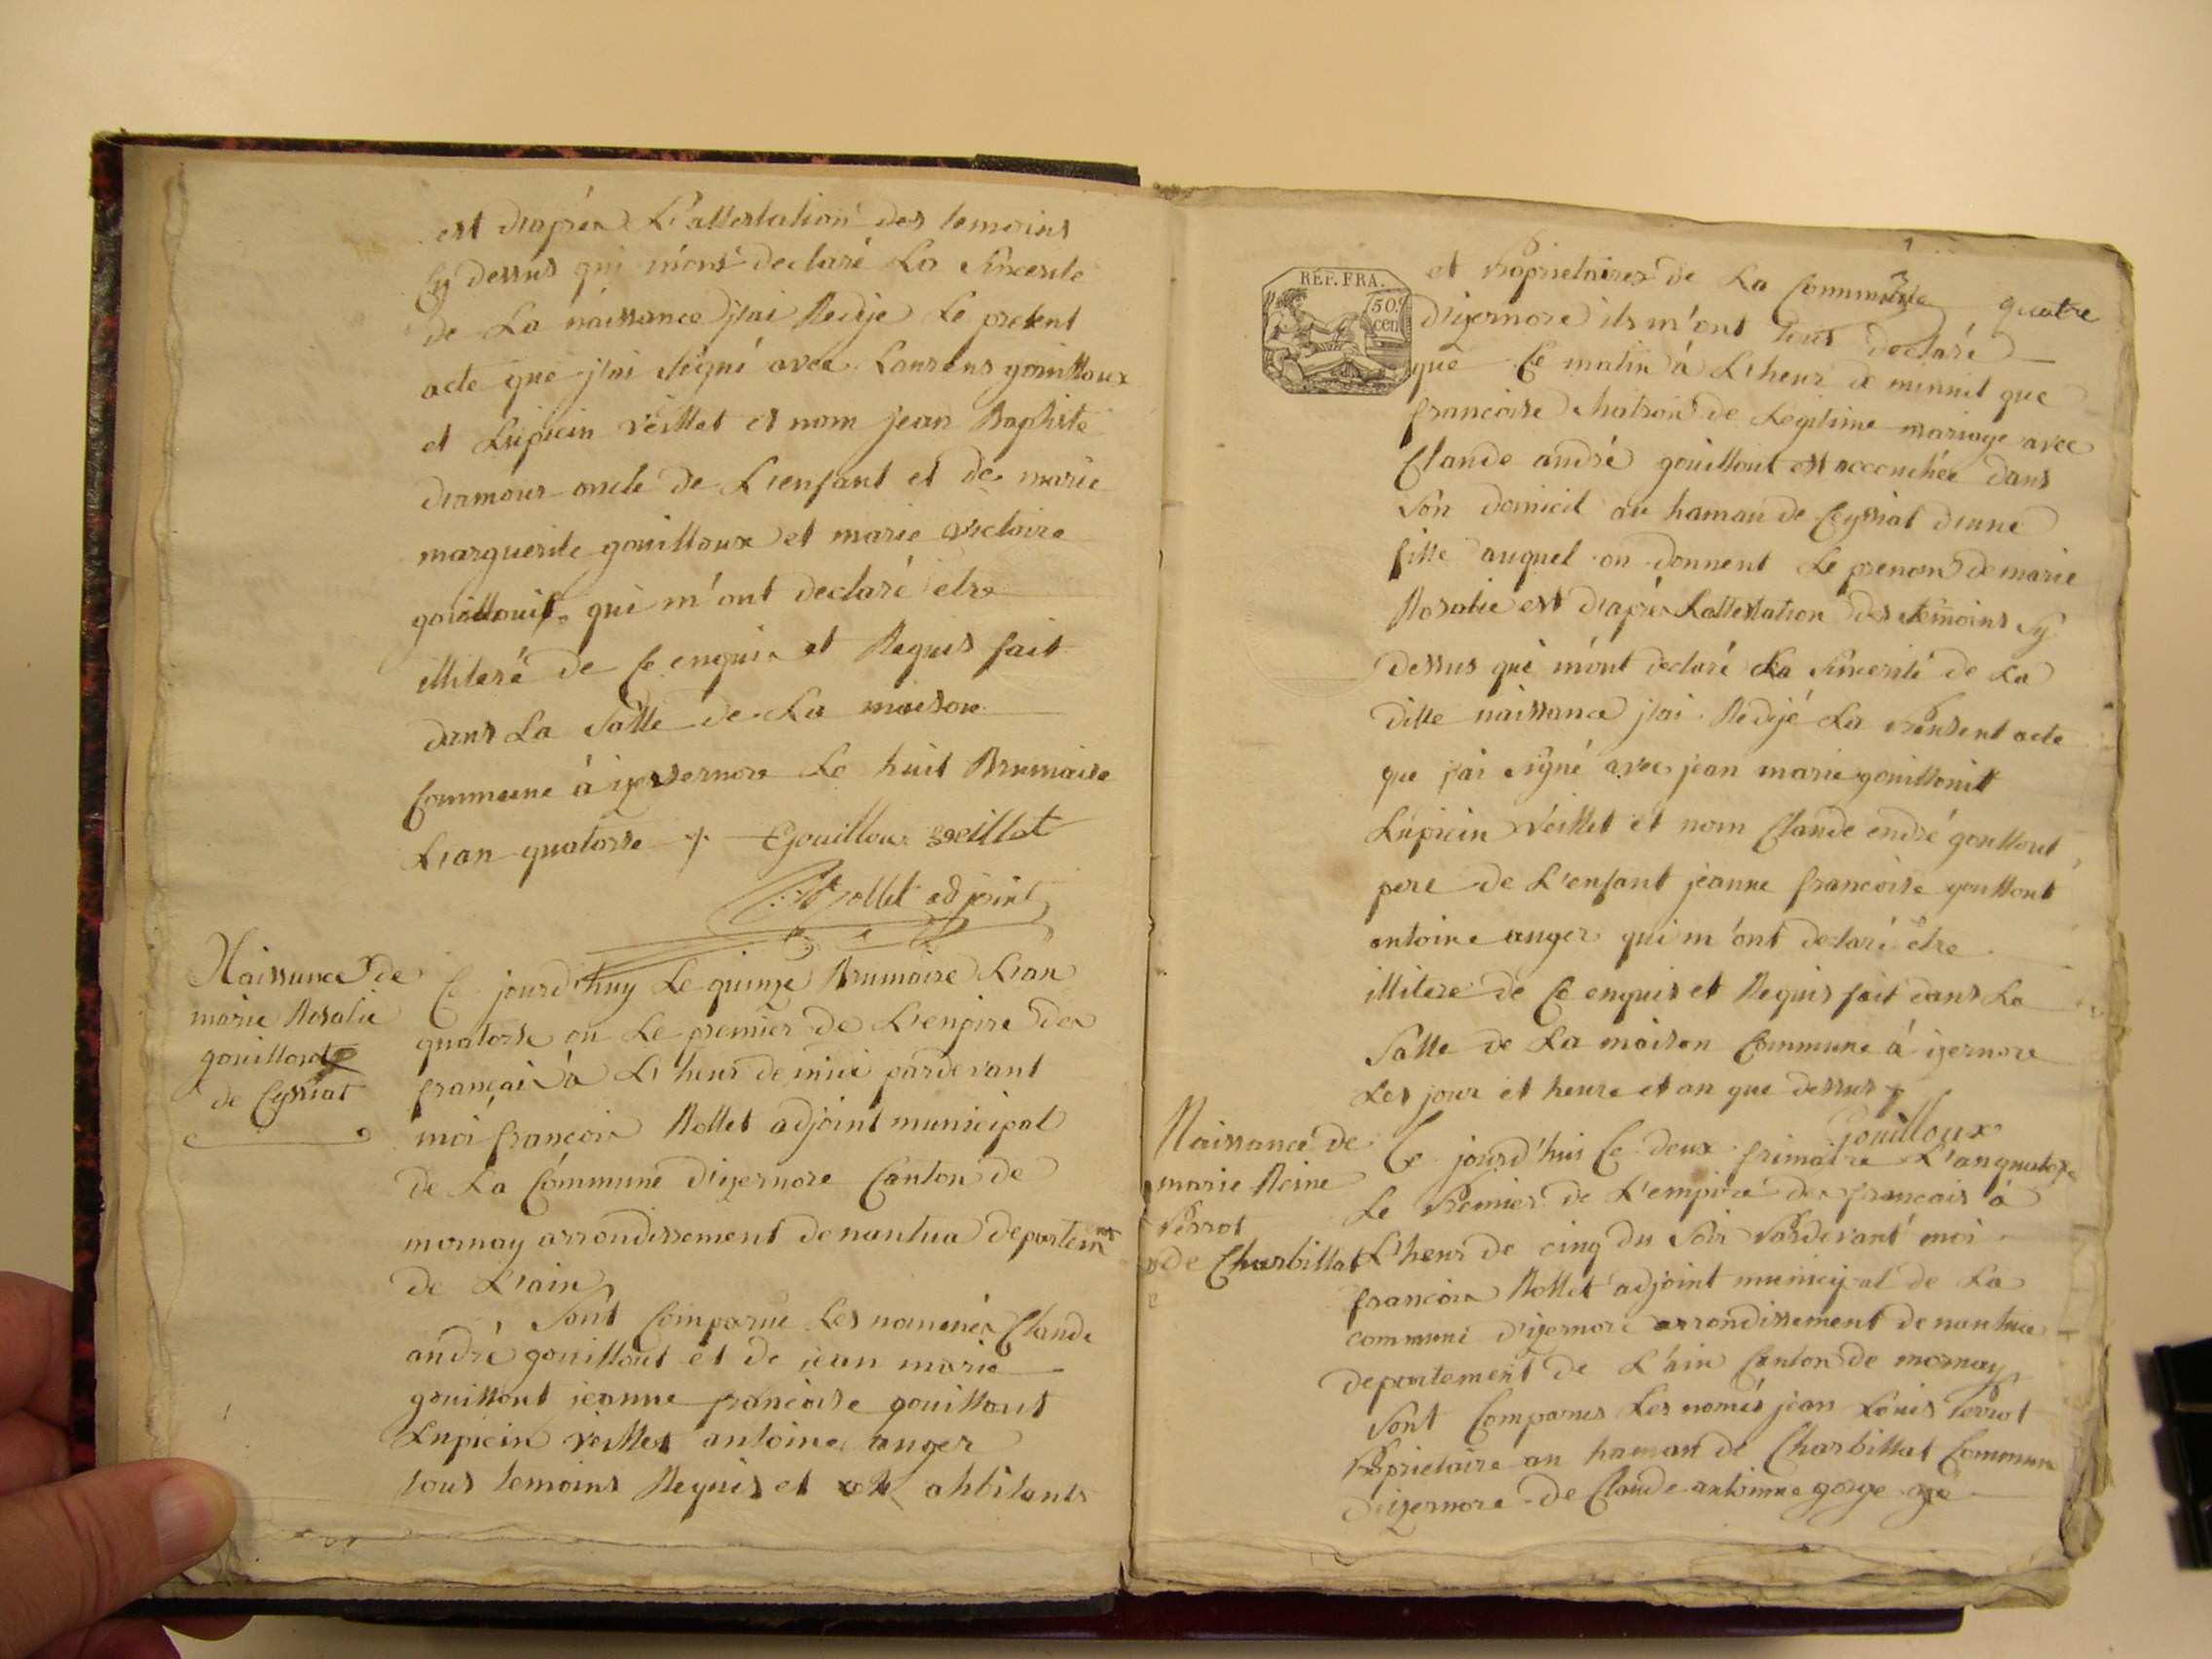 est d'après L'attestation des temoins
Cy dessus qui m'ont declaré La Sincerite
de La naissance j'ai Redije Le present
acte que j'ai Signé avec Laurens gouilloux
et Lupicin véillet et nom jean Baptiste
d'amour oncle de L'enfant et de marie
marguerite gouilloux et marie victoire
gouillout qui m'ont declaré etre
illiteré de Ce enquis et Requis fait
dans La Salle de La maison
Commune à izernore Le huit Brumaire
L'an quatorse
Gouilloux veillet
Rollet adjoint
Naissance de
marie Rosalie
gouillout
de Cyssiat
Ce jourd'huy Le quinze Brumaire L'an
quatorse ou Le premier de L'enpire des
français à L'heur de midi pardevant
moi françois Rollet adjoint municipal
de La Commune d'izernore Canton de
mornay arrondissement de nantua departemnt
de L'ain
Sont Comparue Les nommés Claude
andré gouillout et de jean marie
gouillout jeanne francoise gouillout
Lupicin veillet antoine auger
tous temoins Requis et ahbitants
REP. FRA.
50.
cen
quatre
et Proprietaires de La Commune
d'izernore ils m'ont tous declaré
que Ce matin à L'heur de minuit que
francoise chatron de Legitime mariage avec
Claude andré gouillout est accouchée dans
Son domicil au hamau de Ceyssiat d'une
fille auquel on donnent Le prenom de marie
Rosalie est d'après Lattestation des temoins Sy
dessus qui m'ont declaré La Sincerité de La
ditte naissance j'ai Redijé La présent acte
que j'ai signé avec jean marie gouillout
Lupicin Véillet et nom Claude endré gouillout
pere de L'enfant jeanne francoise gouillout
antoine auger qui m'ont declaré être
illitere de Ce enquis et Requis fait dans La
Salle de La maison Commune à izernore
Les jour et heure et an que dessus
Gouilloux
Naissance de
marie Reine
Perrot
de Charbillat
Ce jourd'hui Ce deux frimaire L'an quatorze
Le Premier de L'empire des francais à
L'heur de cinq du Soir Pardevant moi
francois Rollet adjoint municipal de La
commune d'izernore arrondissement de nantua
departement de L'ain Canton de mornay
Sont Comparus Les només jean Louis Perrot
Proprietaire au hamau de Charbillat Commune
d'izernore de Claude antoinne goyé